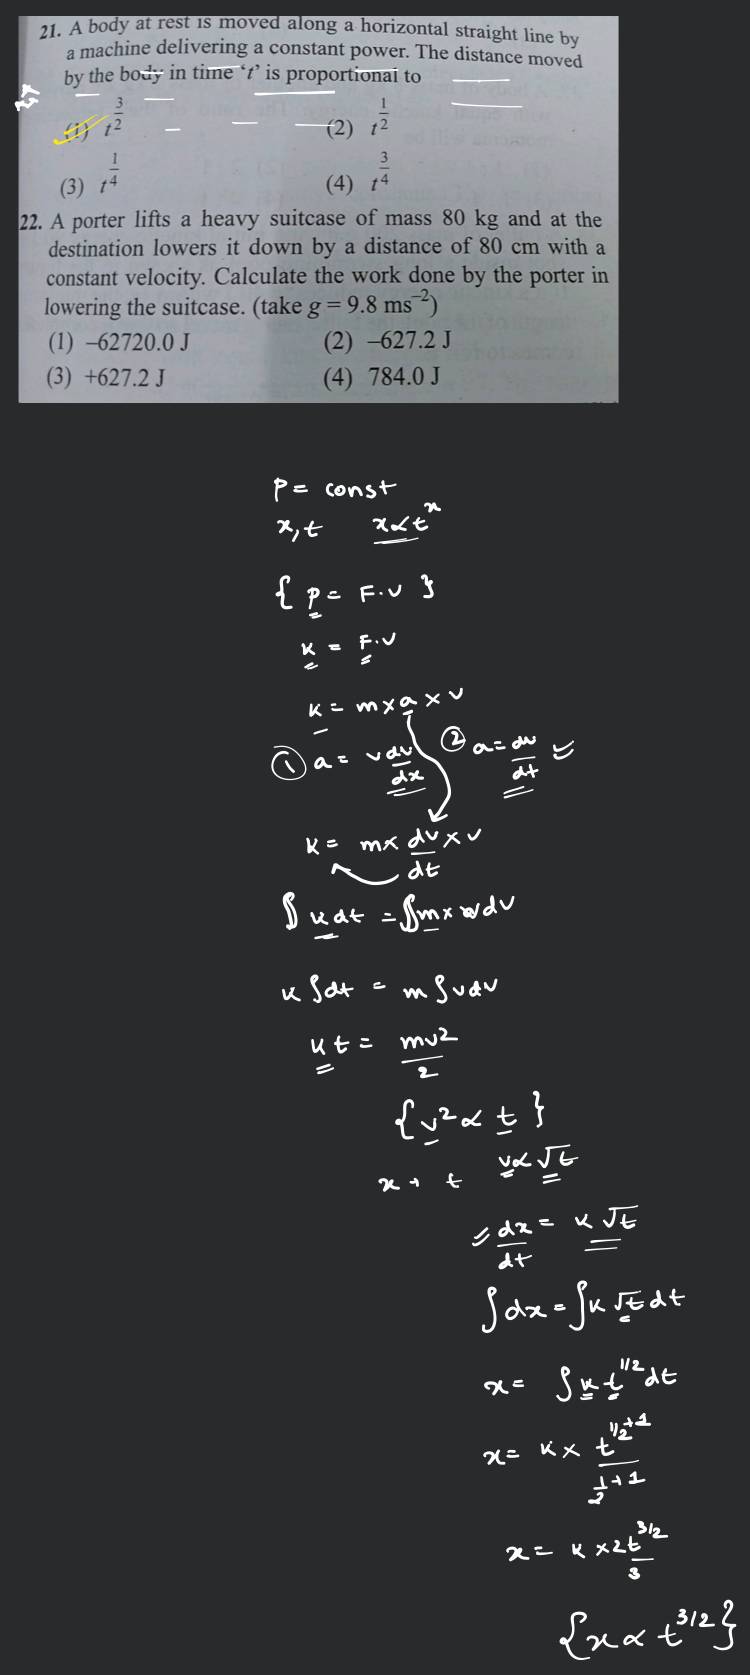 21. A body at rest is moved along a horizontal straight line by
a machine delivering a constant power. The distance moved
by the body in time ‘t’ is proportional to
(1) t^{3/2} (2) t^{1/2}
(3) t^{1/4} (4) t^{3/4}
22. A porter lifts a heavy suitcase of mass 80 kg and at the
destination lowers it down by a distance of 80 cm with a
constant velocity. Calculate the work done by the porter in
lowering the suitcase. (take g = 9.8 ms⁻²)
(1) –62720.0 J (2) –627.2 J
(3) +627.2 J (4) 784.0 J
P = const
x, t x∝t^n
{ P = F·v }
k = F·v
k = m×a×v
① a = v dv/dx ② a = dv/dt
k = m× dv/dt ×v
∫ k dt = ∫ m× v dv
k ∫dt = m ∫vdv
kt = mv²/2
{ v² ∝ t }
v∝ √t
x t
dx/dt = k √t
∫dx = ∫k √t dt
x = ∫k t^{1/2} dt
x = k × t^{1/2+1} / (1/2+1)
x = k × 2t^{3/2}/3
{x ∝ t^{3/2}}